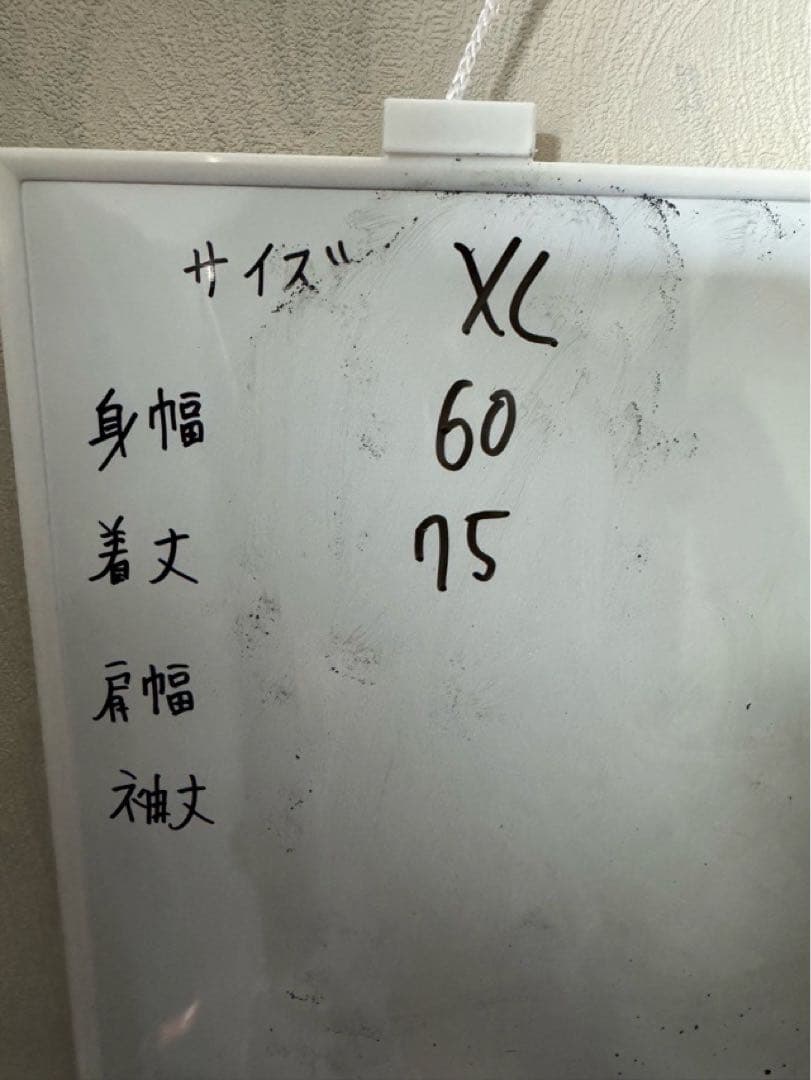 サイズ XL
身幅 60
着丈 75
肩幅
袖丈